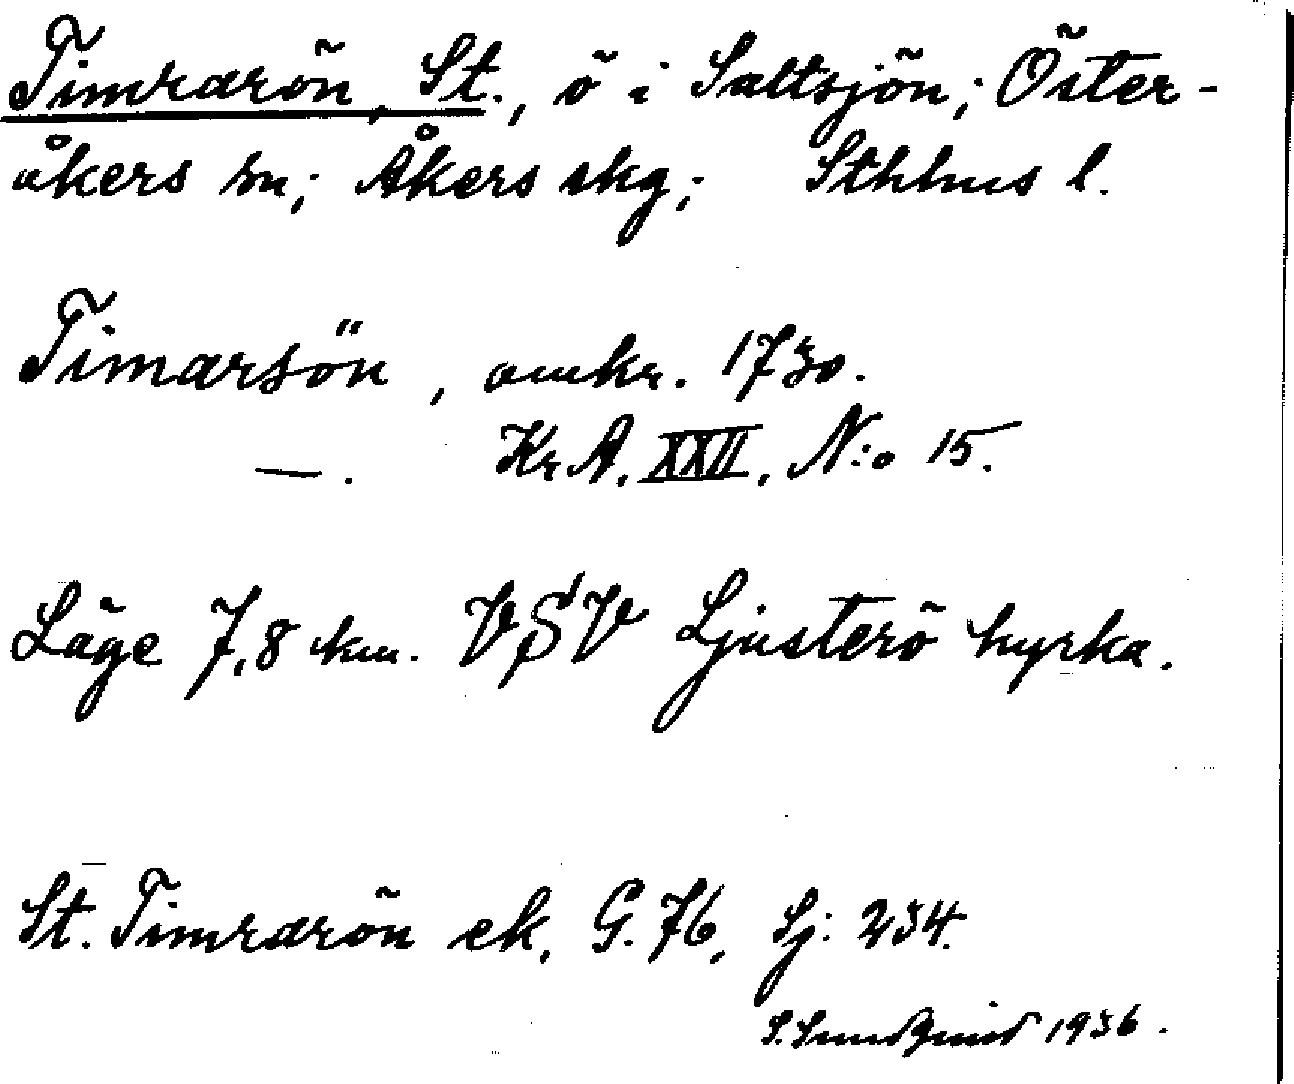 Timrarön, St., ö i Saltsjön; Öster-
åkers sn; Åkers skg; Sthlms l.
Timarsön, omkr. 1730.
—. Kr A. XXII, N:o 15.
Läge 7,8 km. VSV Ljusterö kyrka.
St. Timrarön ek. G. 76, Sj: 234.
S. Sundquist 1936.